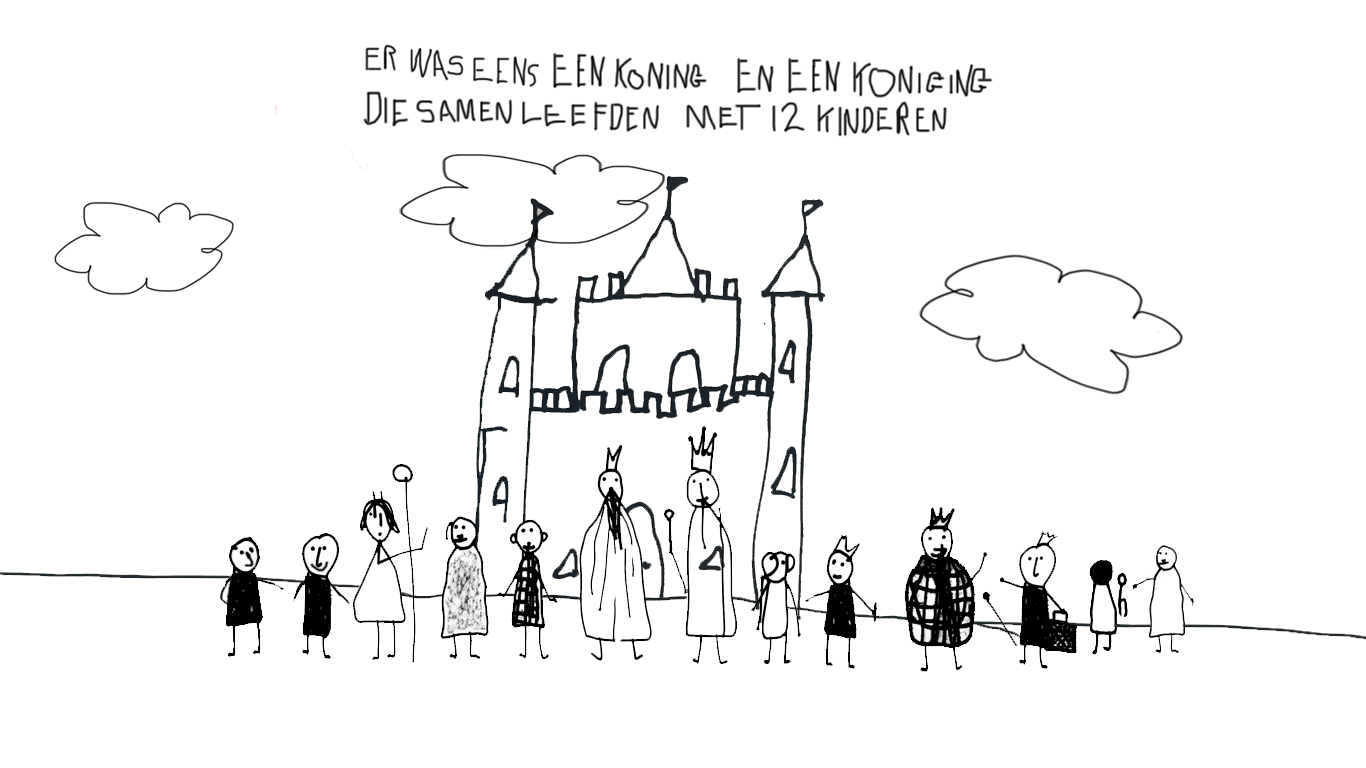 ER WAS EENS EEN KONING EN EEN KONIGING
DIE SAMEN LEEFDEN MET 12 KINDEREN